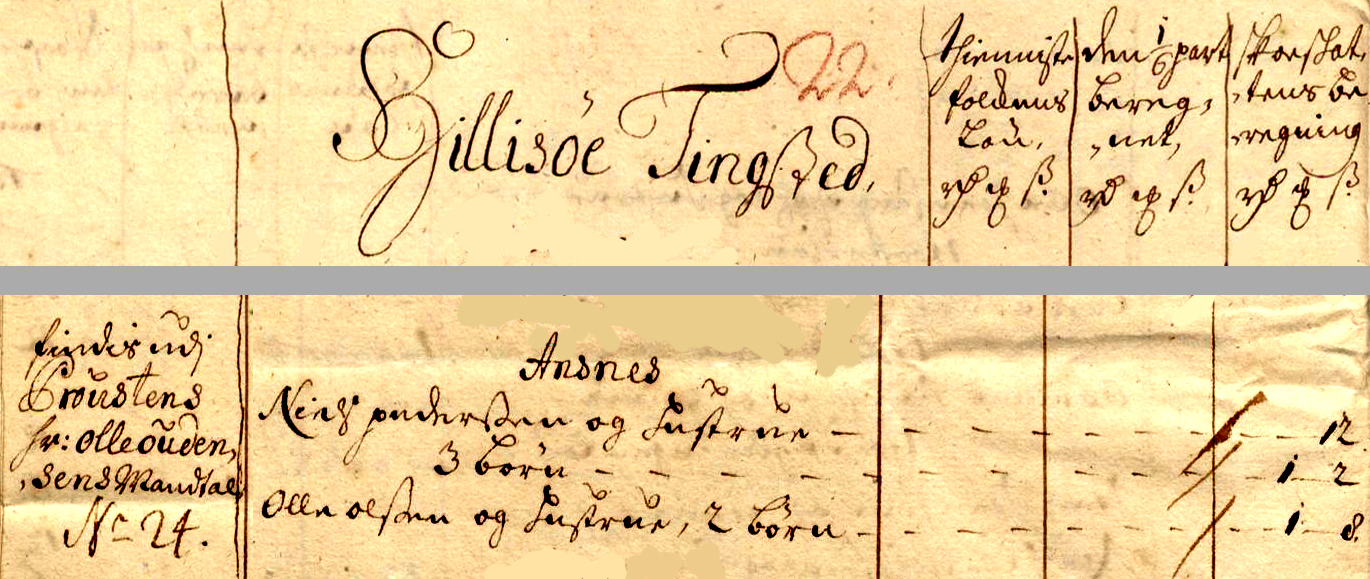 22.
Hillisöe Tingsted,
thienniste
folckens
Løn,
rd ort ß
den 1/6 part
bereg,
,net,
rd ort ß
skoeskat,
,tens be
regning
rd ort ß
findis udj
Proustens
hr: olle ouden,
,sens Mandtal
No 24.
Ansnes
Niels pederssen og Hustrue – 12
3 börn – 1 – 2
Olle olssen og Hustrue, 2 börn – 1 – 8